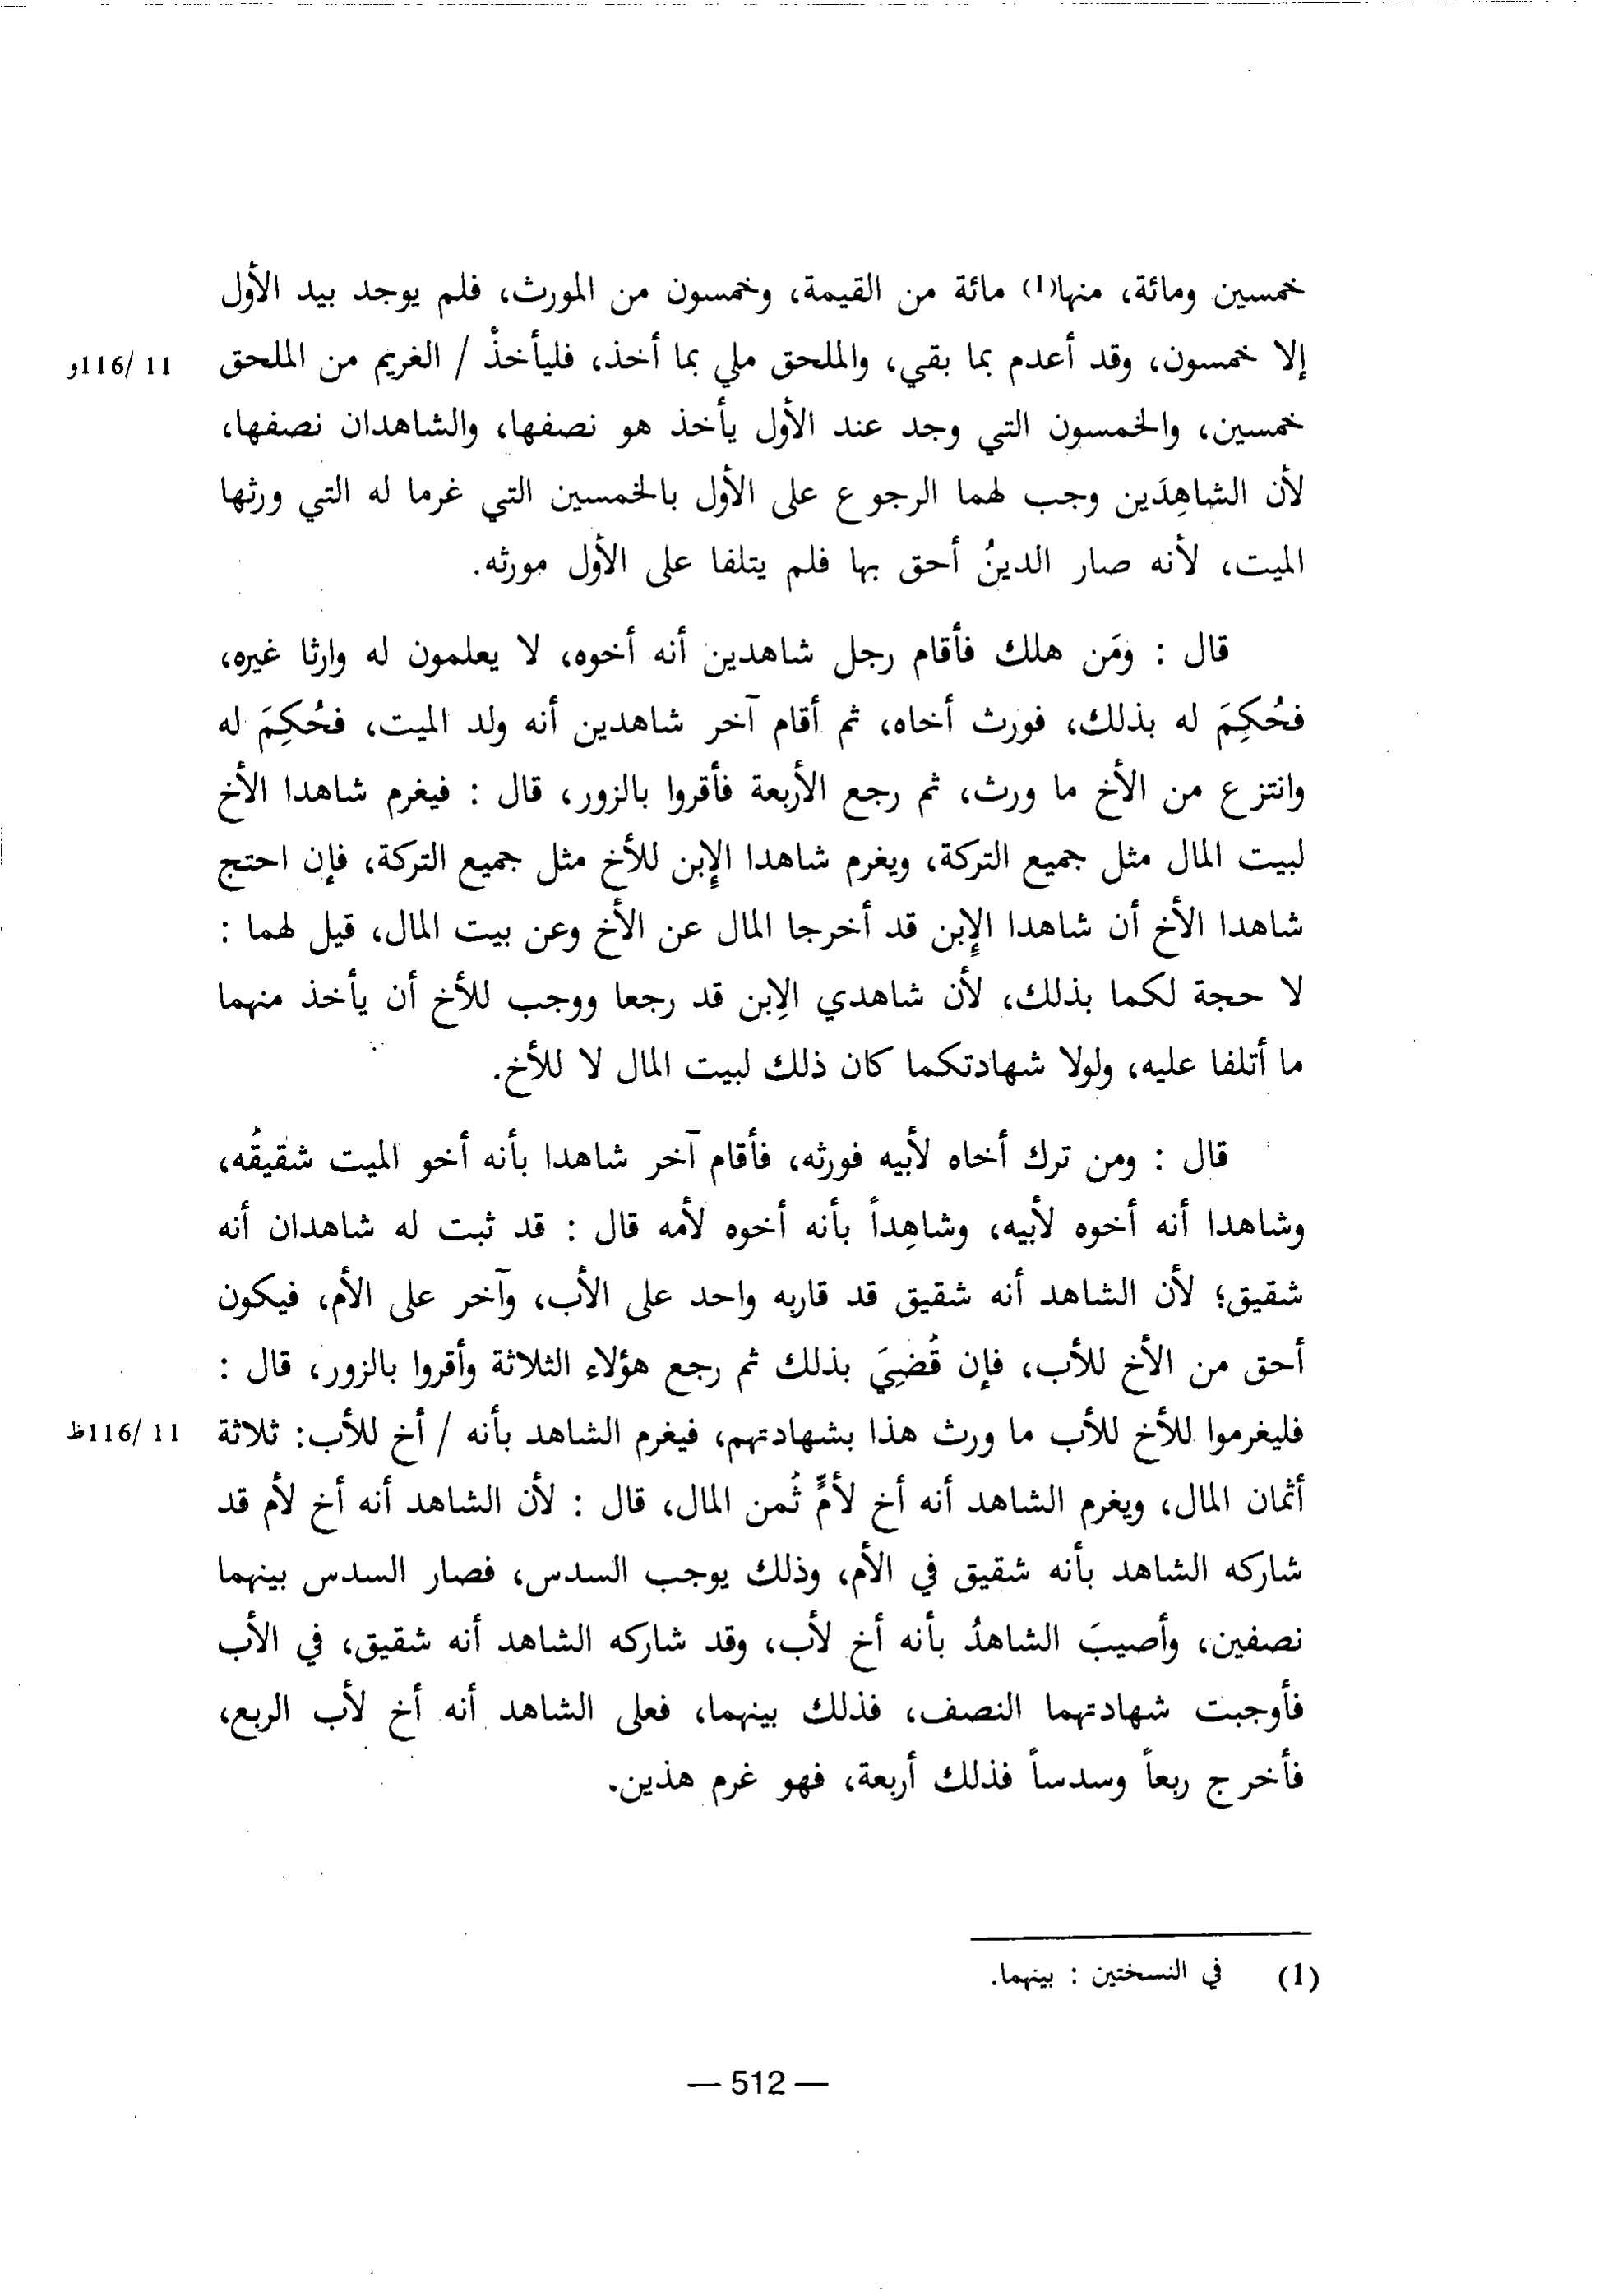 خمسين ومائة، منها(1) مائة من القيمة، وخمسون من المورث، فلم يوجد بيد الأول
إلا خمسون، وقد أعدم بما بقي، والملحق ملي بما أخذ، فليأخذْ / الغريم من الملحق
11 /116و
خمسين، والخمسون التي وجد عند الأول يأخذ هو نصفها، والشاهدان نصفها،
لأن الشاهِدَين وجب لهما الرجوع على الأول بالخمسين التي غرما له التي ورثها
الميت، لأنه صار الدينُ أحق بها فلم يتلفا على الأول مورثه.
قال : ومَن هلك فأقام رجل شاهدين أنه أخوه، لا يعلمون له وارثا غيره،
فحُكِمَ له بذلك، فورث أخاه، ثم أقام آخر شاهدين أنه ولد الميت، فحُكِمَ له
وانتزع من الأخ ما ورث، ثم رجع الأربعة فأقروا بالزور، قال : فيغرم شاهدا الأخ
لبيت المال مثل جميع التركة، ويغرم شاهدا الإبن للأخ مثل جميع التركة، فإن احتج
شاهدا الأخ أن شاهدا الإبن قد أخرجا المال عن الأخ وعن بيت المال، قيل لهما :
لا حجة لكما بذلك، لأن شاهدي الاِبن قد رجعا ووجب للأخ أن يأخذ منهما
ما أتلفا عليه، ولولا شهادتكما كان ذلك لبيت المال لا للأخ.
قال : ومن ترك أخاه لأبيه فورثه، فأقام آخر شاهدا بأنه أخو الميت شقيقُه،
وشاهدا أنه أخوه لأبيه، وشاهِداً بأنه أخوه لأمه قال : قد ثبت له شاهدان أنه
شقيق؛ لأن الشاهد أنه شقيق قد قاربه واحد على الأب، وآخر على الأم، فيكون
أحق من الأخ للأب، فإن قُضِيَ بذلك ثم رجع هؤلاء الثلاثة وأقروا بالزور، قال :
فليغرموا للأخ للأب ما ورث هذا بشهادتهم، فيغرم الشاهد بأنه / أخ للأب: ثلاثة
11 /116ظ
أثمان المال، ويغرم الشاهد أنه أخ لأمٍّ ثُمن المال، قال : لأن الشاهد أنه أخ لأم قد
شاركه الشاهد بأنه شقيق في الأم، وذلك يوجب السدس، فصار السدس بينهما
نصفين، وأصيبَ الشاهدُ بأنه أخ لأب، وقد شاركه الشاهد أنه شقيق، في الأب
فأوجبت شهادتهما النصف، فذلك بينهما، فعلى الشاهد أنه أخ لأب الربع،
فأخرج ربعاً وسدساً فذلك أربعة، فهو غرم هذين.
(1) في النسختين : بينهما.
— 512 —